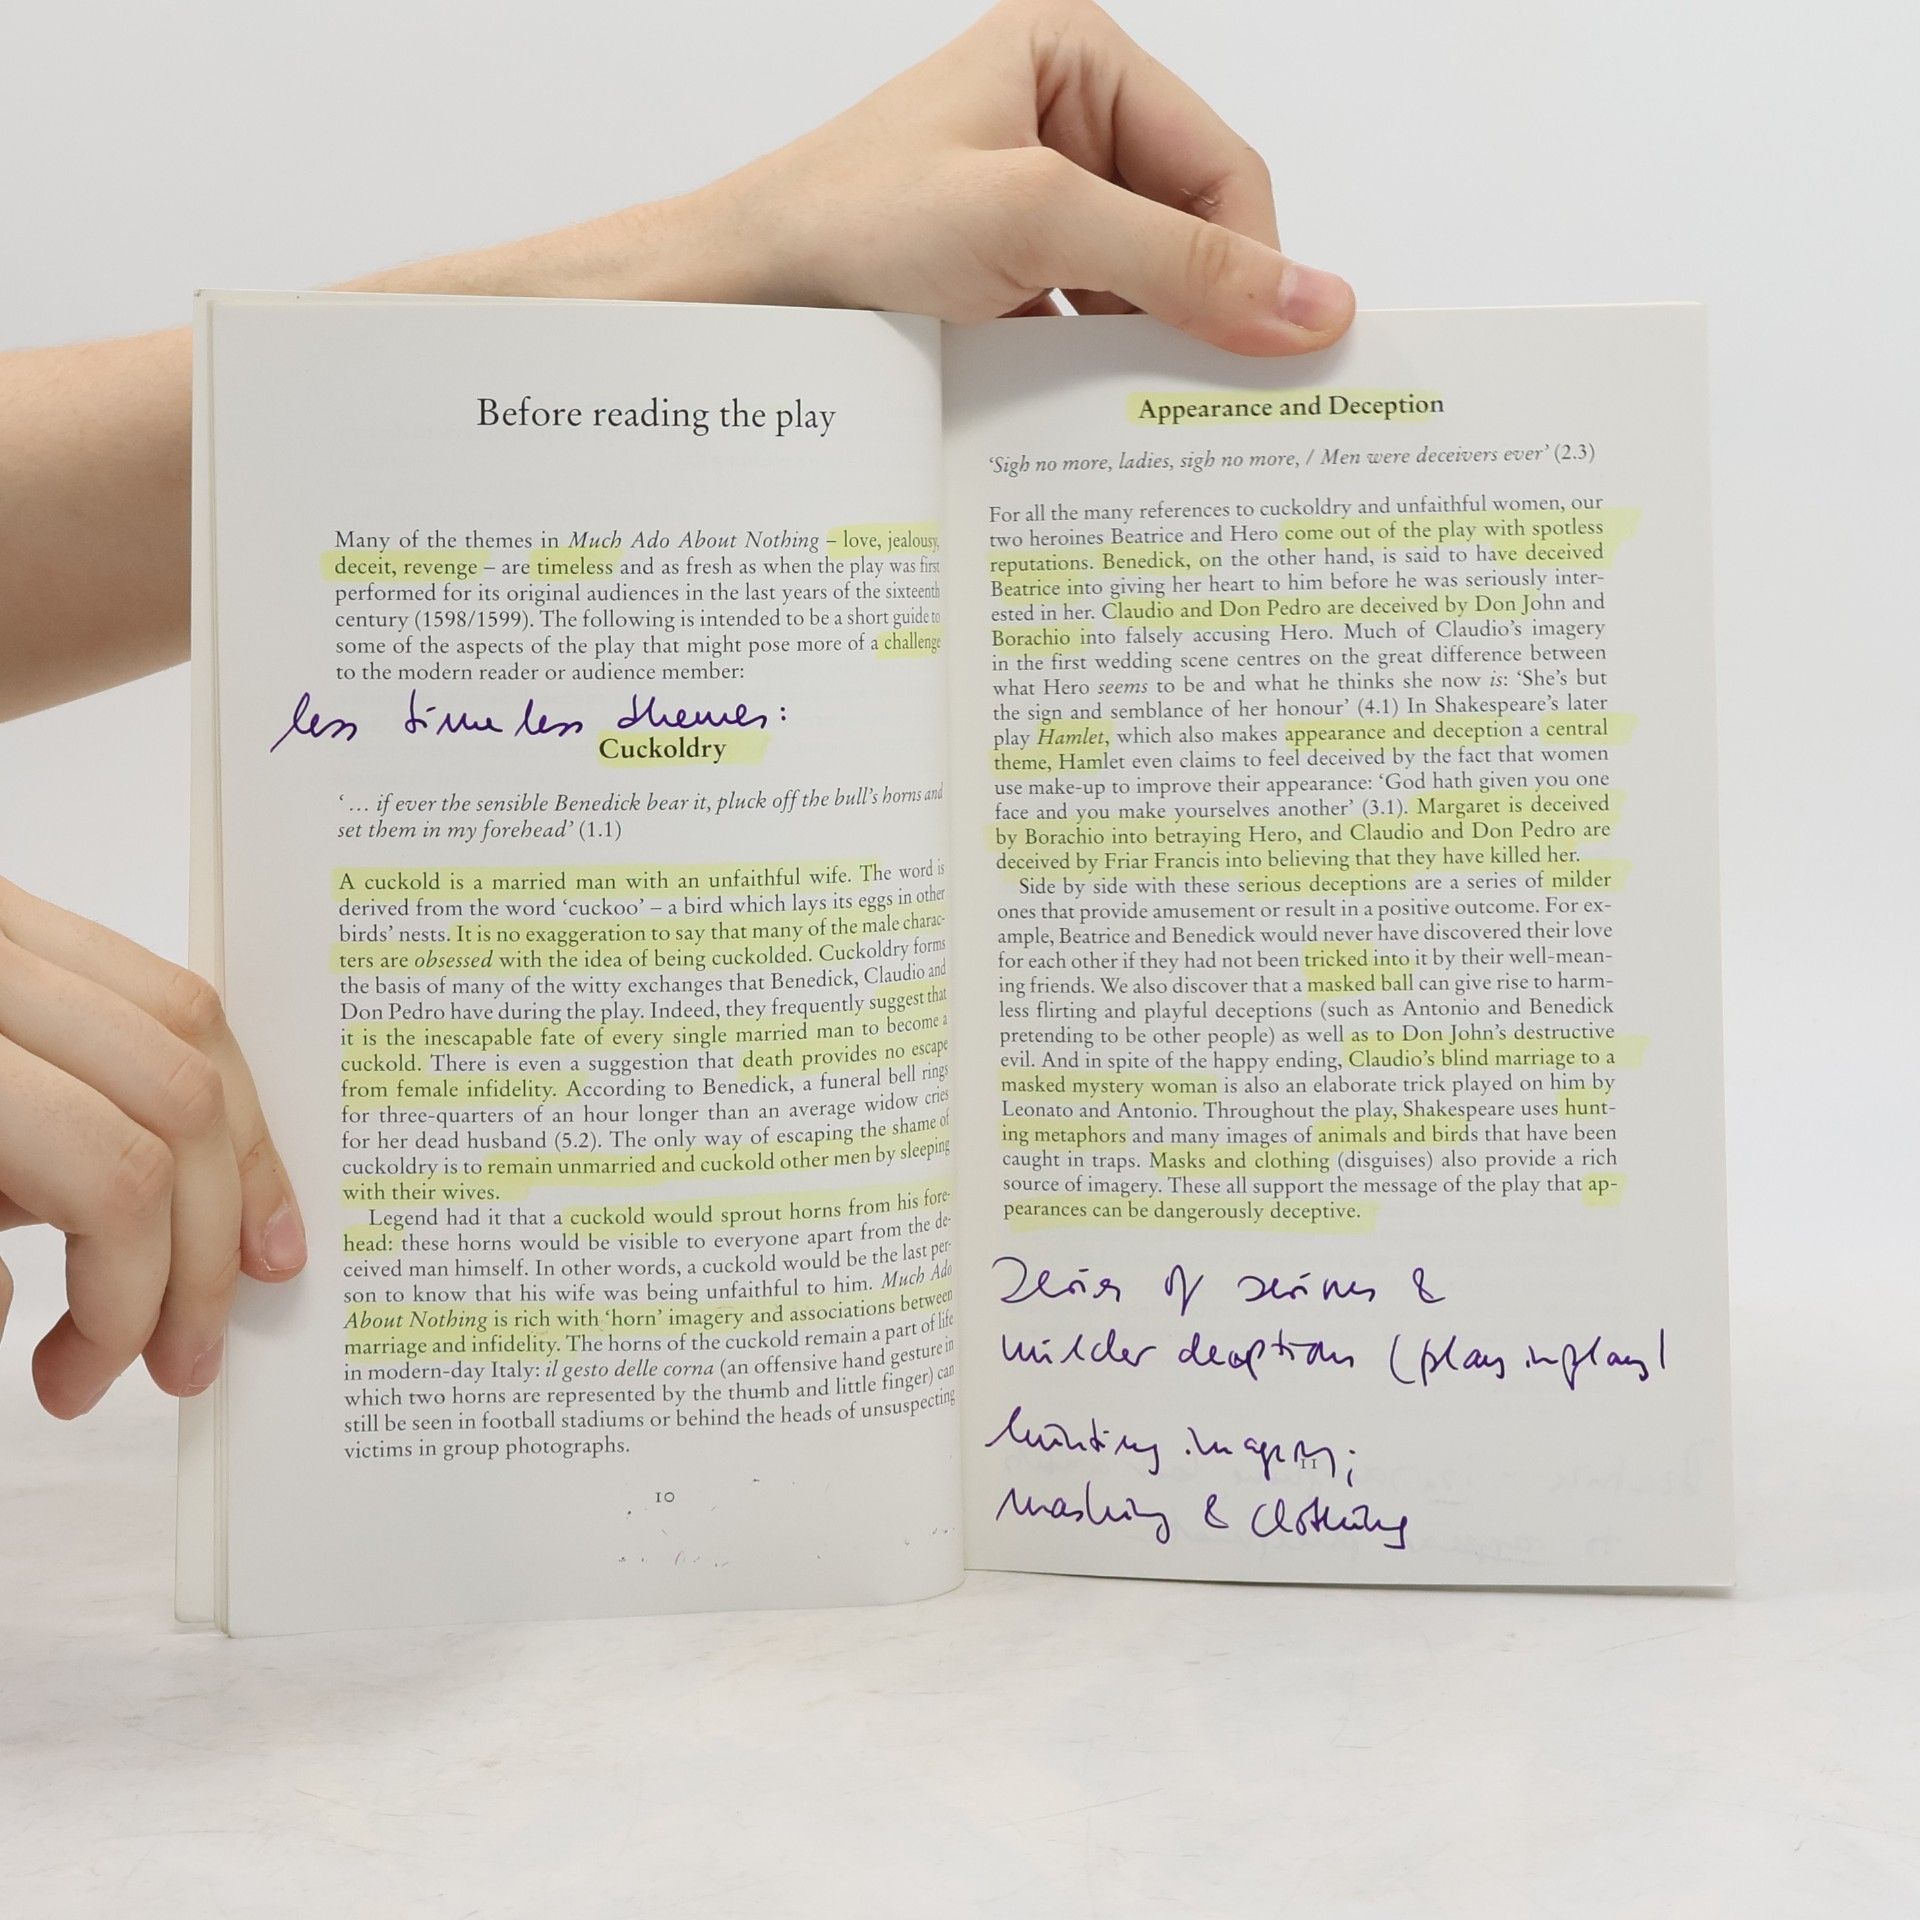 Before reading the play
Many of the themes in Much Ado About Nothing – love, jealousy,
deceit, revenge – are timeless and as fresh as when the play was first
performed for its original audiences in the last years of the sixteenth
century (1598/1599). The following is intended to be a short guide to
some of the aspects of the play that might pose more of a challenge
to the modern reader or audience member:
less timeless themes:
Cuckoldry
‘ … if ever the sensible Benedick bear it, pluck off the bull’s horns and
set them in my forehead’ (1.1)
A cuckold is a married man with an unfaithful wife. The word is
derived from the word ‘cuckoo’ – a bird which lays its eggs in other
birds’ nests. It is no exaggeration to say that many of the male charac-
ters are obsessed with the idea of being cuckolded. Cuckoldry forms
the basis of many of the witty exchanges that Benedick, Claudio and
Don Pedro have during the play. Indeed, they frequently suggest that
it is the inescapable fate of every single married man to become a
cuckold. There is even a suggestion that death provides no escape
from female infidelity. According to Benedick, a funeral bell rings
for three-quarters of an hour longer than an average widow cries
for her dead husband (5.2). The only way of escaping the shame of
cuckoldry is to remain unmarried and cuckold other men by sleeping
with their wives.
Legend had it that a cuckold would sprout horns from his fore-
head: these horns would be visible to everyone apart from the de-
ceived man himself. In other words, a cuckold would be the last per-
son to know that his wife was being unfaithful to him. Much Ado
About Nothing is rich with ‘horn’ imagery and associations between
marriage and infidelity. The horns of the cuckold remain a part of life
in modern-day Italy: il gesto delle corna (an offensive hand gesture in
which two horns are represented by the thumb and little finger) can
still be seen in football stadiums or behind the heads of unsuspecting
victims in group photographs.
10
Appearance and Deception
‘Sigh no more, ladies, sigh no more, / Men were deceivers ever’ (2.3)
For all the many references to cuckoldry and unfaithful women, our
two heroines Beatrice and Hero come out of the play with spotless
reputations. Benedick, on the other hand, is said to have deceived
Beatrice into giving her heart to him before he was seriously inter-
ested in her. Claudio and Don Pedro are deceived by Don John and
Borachio into falsely accusing Hero. Much of Claudio’s imagery
in the first wedding scene centres on the great difference between
what Hero seems to be and what he thinks she now is: ‘She’s but
the sign and semblance of her honour’ (4.1) In Shakespeare’s later
play Hamlet, which also makes appearance and deception a central
theme, Hamlet even claims to feel deceived by the fact that women
use make-up to improve their appearance: ‘God hath given you one
face and you make yourselves another’ (3.1). Margaret is deceived
by Borachio into betraying Hero, and Claudio and Don Pedro are
deceived by Friar Francis into believing that they have killed her.
Side by side with these serious deceptions are a series of milder
ones that provide amusement or result in a positive outcome. For ex-
ample, Beatrice and Benedick would never have discovered their love
for each other if they had not been tricked into it by their well-mean-
ing friends. We also discover that a masked ball can give rise to harm-
less flirting and playful deceptions (such as Antonio and Benedick
pretending to be other people) as well as to Don John’s destructive
evil. And in spite of the happy ending, Claudio’s blind marriage to a
masked mystery woman is also an elaborate trick played on him by
Leonato and Antonio. Throughout the play, Shakespeare uses hunt-
ing metaphors and many images of animals and birds that have been
caught in traps. Masks and clothing (disguises) also provide a rich
source of imagery. These all support the message of the play that ap-
pearances can be dangerously deceptive.
Series of serious &
milder deceptions (plays in play)
hunting imagery;
11
masking & clothing